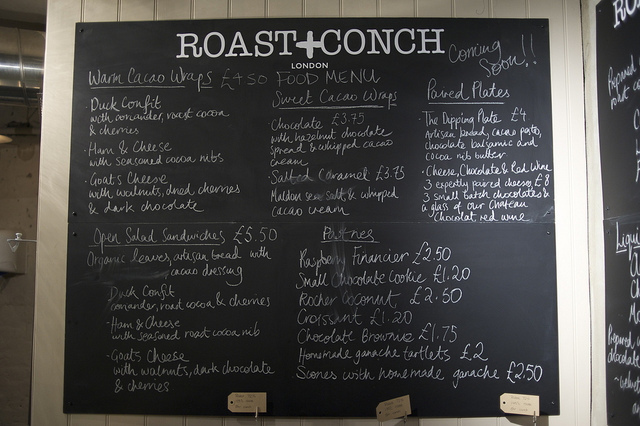 ROAST+CONCH
LONDON
Coming
Soon!!
FOOD MENU
Warm Cacao Wraps £4.50
Duck Confit
with coriander, roast cocoa
& cherries
Ham & Cheese
with seasoned cocoa nibs
Goat's Cheese
with walnuts, dried cherries
& dark chocolate
Sweet Cacao Wraps
Chocolate £3.75
with hazelnut chocolate
spread & whipped cacao
cream
Salted Caramel £3.75
Maldon sea salt & whipped
cacao cream
Paired Plates
The Dipping Plate £4
Artisan bread, cacao pesto,
chocolate balsamic and
cocoa nib butter
Cheese, Chocolate & Red Wine
3 expertly paired cheeses, £8
3 small batch chocolates &
a glass of our Chateau
Chocolat red wine
Open Salad Sandwiches £5.50
Organic leaves, artisan bread with
cacao dressing
Duck Confit
coriander, roast cocoa & cherries
Ham & Cheese
with seasoned roast cocoa nib
Goats Cheese
with walnuts, dark chocolate
& cherries
Pastries
Raspberry Financier £2.50
Small Chocolate Cookie £1.20
Rocher Coconut £2.50
Croissant £1.20
Chocolate Brownie £1.75
Homemade ganache tartlets £2
Scones with homemade ganache £2.50